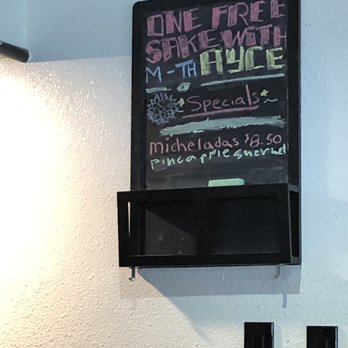 ONE FREE
SAKE WITH
M-TH AYCE
Specials
micheladas $8.50
pineapple